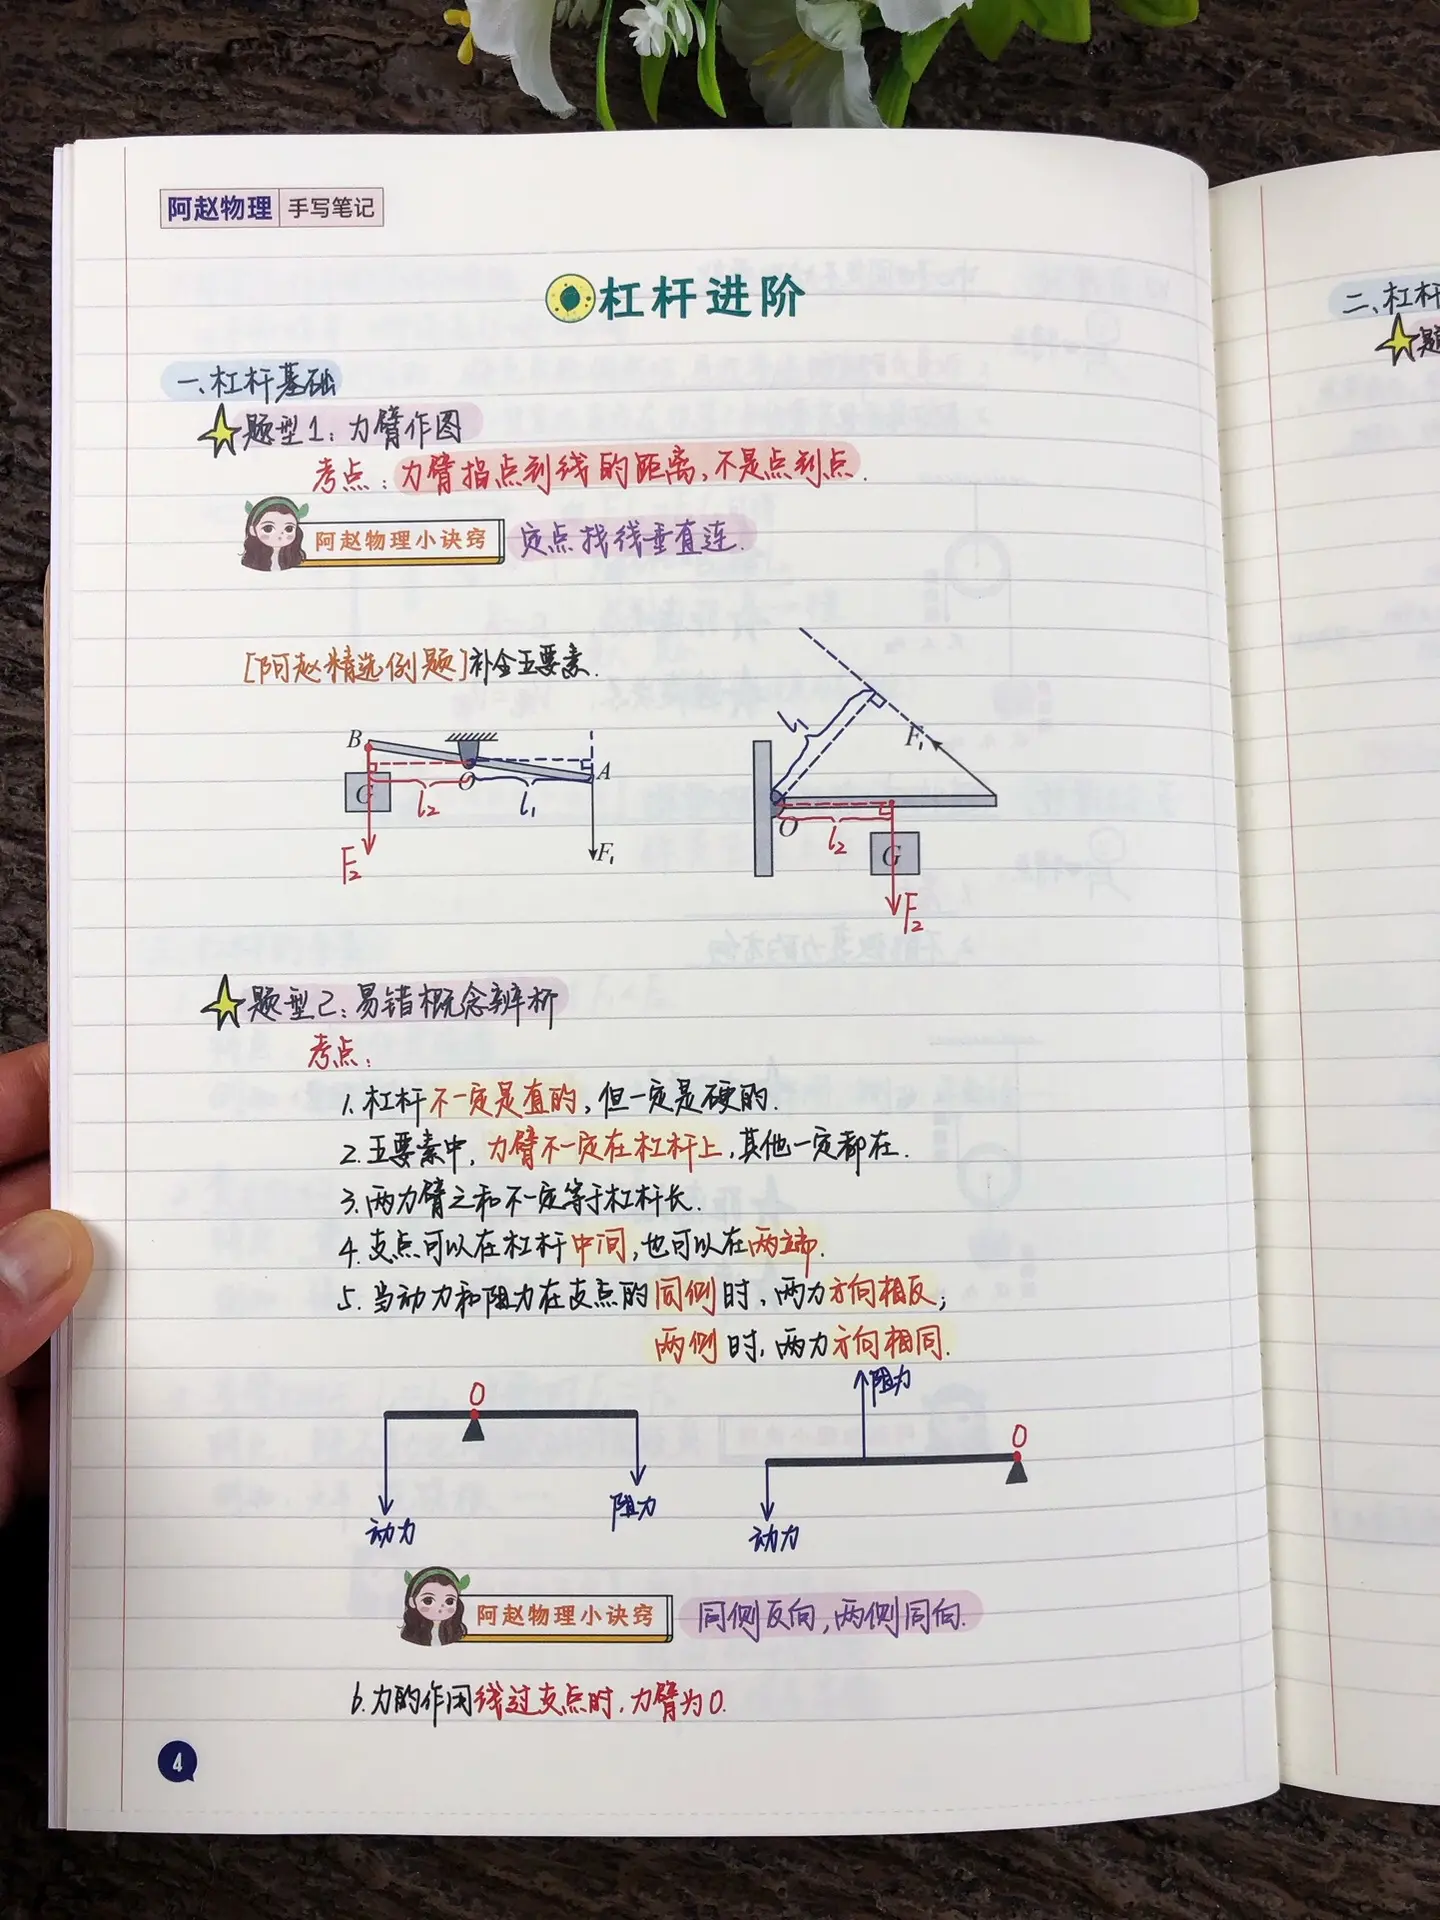 阿赵物理 手写笔记
杠杆进阶
一、杠杆基础
题型1：力臂作图
考点：力臂指点到线的距离，不是点到点.
阿赵物理小诀窍 定点找线垂直连.
[阿赵精选例题]补全五要素.
B O A G l2 l1 F2 F1
l1 F1 O l2 G F2
题型2：易错概念辨析
考点：
1.杠杆不一定是直的，但一定是硬的.
2.五要素中，力臂不一定在杠杆上，其他一定都在.
3.两力臂之和不一定等于杠杆长.
4.支点可以在杠杆中间，也可以在两端.
5.当动力和阻力在支点的同侧时，两力方向相反；
两侧时，两力方向相同.
O 动力 阻力
阻力 O 动力
阿赵物理小诀窍 同侧反向，两侧同向.
6.力的作用线过支点时，力臂为0.
4
二、杠杆